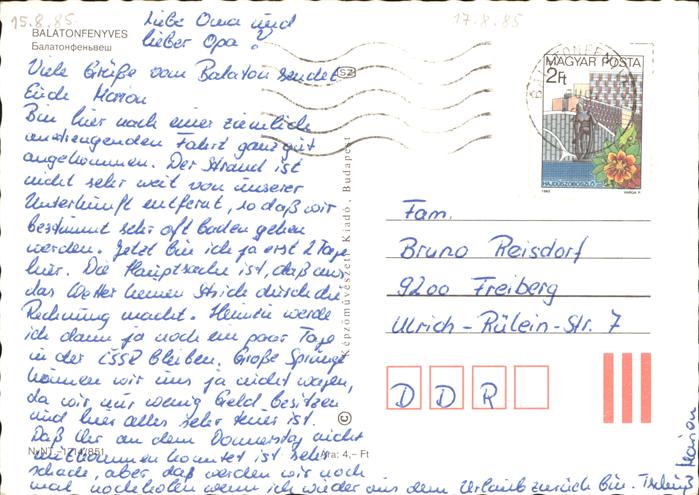 15.8.85
17.8.85
BALATONFENYVES
Балатонфеньвеш
Liebe Oma und
lieber Opa!
Viele Grüße vom Balaton sendet
Euch Marion
Bin hier nach einer ziemlich
anstrengenden Fahrt ganz gut
angekommen. Der Strand ist
nicht sehr weit von unserer
Unterkunft entfernt, so daß wir
bestimmt sehr oft baden gehen
werden. Jetzt bin ich ja erst 2 Tage
hier. Die Hauptsache ist, daß uns
das Wetter keinen Strich durch die
Rechnung macht. Heimzu werde
ich dann ja noch ein paar Tage
in der ČSSR bleiben. Große Sprünge
können wir uns ja nicht wagen,
da wir nur wenig Geld besitzen
und hier alles sehr teuer ist.
Daß Ihr an dem Donnerstag nicht
konntet ist sehr
schade, aber daß werden wir noch
mal nachholen wenn ich wieder aus dem Urlaub zurück bin. Tschüß Marion
Képzőművészeti Kiadó, Budapest
SZ
MAGYAR POSTA
2Ft
HAJDÚSZOBOSZLÓ
1983
VARGA P.
Fam.
Bruno Reisdorf
9200 Freiberg
Ulrich-Rülein-Str. 7
DDR
Ára: 4,- Ft